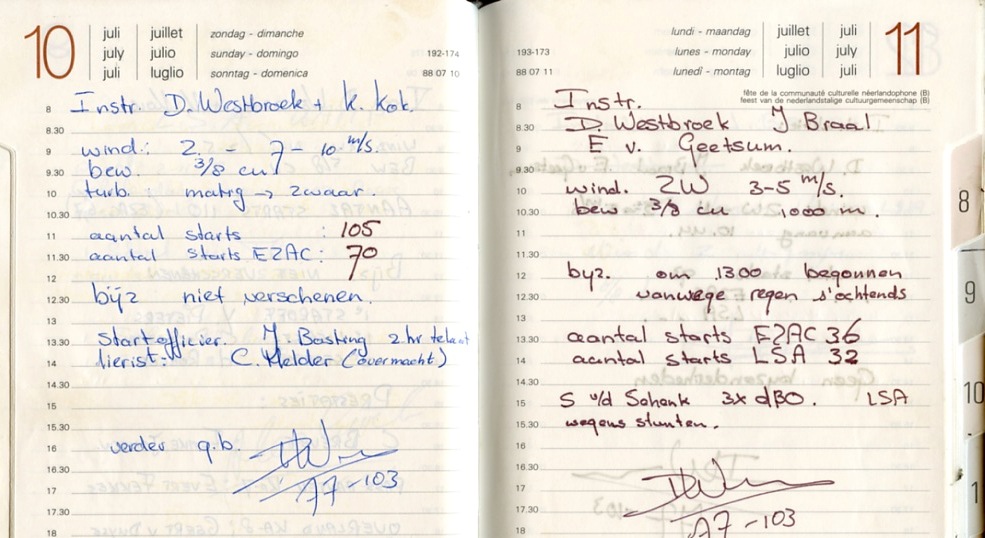 10
juli juillet zondag - dimanche
july julio sunday - domingo 192-174
juli luglio sonntag - domenica 88 07 10
8 Instr. D. Westbroek + K. Kok.
8.30
9 wind.: Z. - 7 - 10 m/s.
9.30 bew. 3/8 cu
10 turb. : matig → zwaar.
10.30
11 aantal starts : 105
11.30 aantal starts EZAC: 70
12
12.30 bijz niet verschenen.
13
13.30 Startofficier. J. Basting 2 hr te laat
14 lierist: C. Melder (overmacht)
14.30
15
15.30
16 verder g.b.
16.30
17 A7-103
17.30
18
11
lundi - maandag juillet juli
193-173 lunes - monday julio july
88 07 11 lunedì - montag luglio juli
fête de la communauté culturelle néerlandophone (B)
feest van de nederlandstalige cultuurgemeenschap (B)
8 Instr.
8.30 D. Westbroek J Braal
9 E v. Geetsum.
9.30
10 wind. ZW 3-5 m/s.
10.30 bew 3/8 cu 1000 m.
11
11.30
12 byz. om 1300 begonnen
12.30 vanwege regen s'ochtends
13
13.30 aantal starts EZAC 36
14 aantal starts LSA 32
14.30
15 S v/d Schenk 3x dBO. LSA
15.30 wegens stunten.
16
16.30
17
17.30 A7-103
18
8
9
10
1